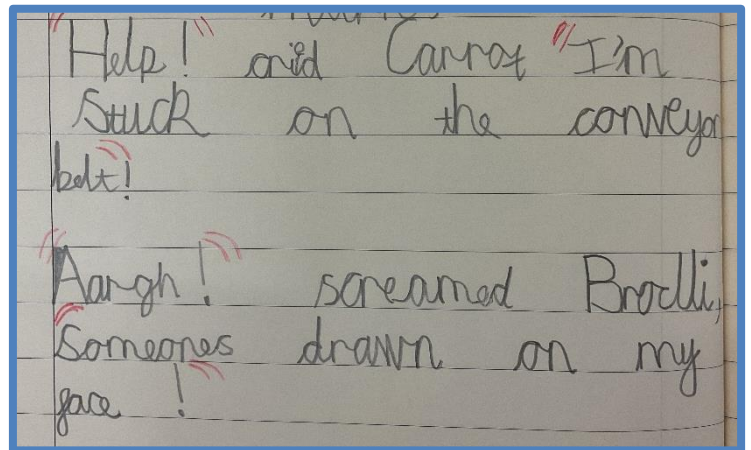 "Help!" cried Carrot "I'm
stuck on the conveyor
belt"!
"Aargh!" screamed Brolli,
"Someones drawn on my
face"!